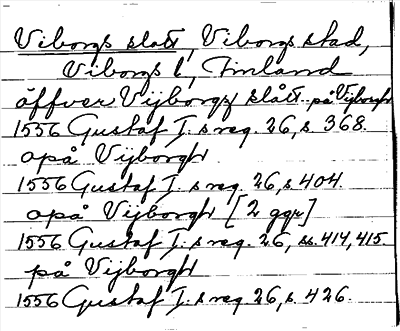 Viborgs slott, Viborgs stad,
Viborgs l, Finland
åffver Vijborgz slått på Vijborgh
1556 Gustaf I. s reg. 26, s. 368.
opå Vijborgh
1556 Gustaf I. s reg. 26, s. 404.
opå Vijborgh [2 ggr]
1556 Gustaf I. s reg. 26, ss. 414, 415.
på Vijborgh
1556 Gustaf I. s reg. 26, s. 426.